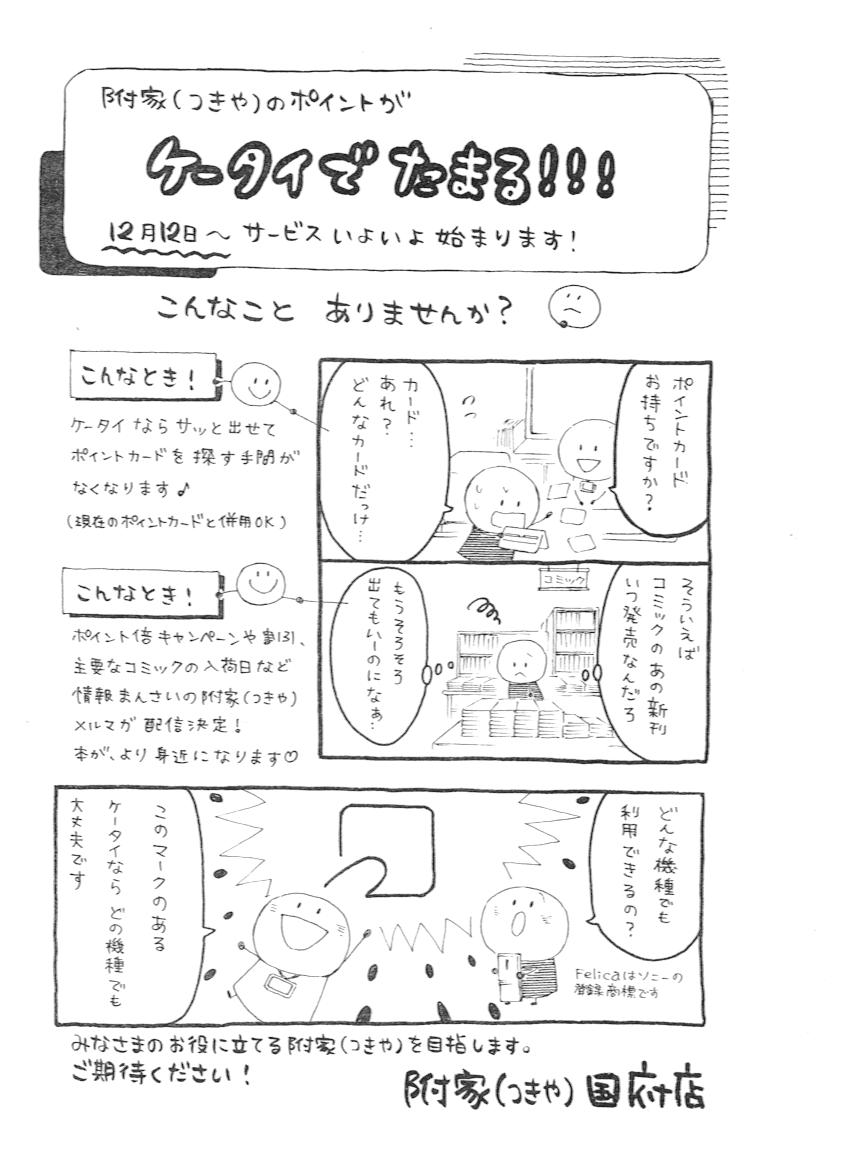 附家(つきや)のポイントが
ケータイで たまる!!!
12月12日～ サービス いよいよ 始まります!
こんなこと ありませんか?
こんなとき!
ケータイ なら サッと 出せて
ポイントカードを 探す 手間が
なくなります♪
(現在のポイントカードと併用OK)
ポイントカード
お持ちですか?
カード…
あれ?
どんなカードだっけ…
こんなとき!
ポイント倍 キャンペーンや 割引、
主要なコミックの入荷日など
情報 まんさいの附家(つきや)
メルマガ 配信決定!
本が、より 身近になります♡
コミック
そういえば
コミックの あの 新刊
いつ発売なんだろ
もうそろそろ
出てもいーのになぁ…
どんな機種でも
利用できるの?
このマークのある
ケータイなら どの機種でも
大丈夫です
Felicaはソニーの
登録商標です
みなさまの お役に立てる 附家(つきや)を目指します。
ご期待ください!
附家(つきや) 国府店